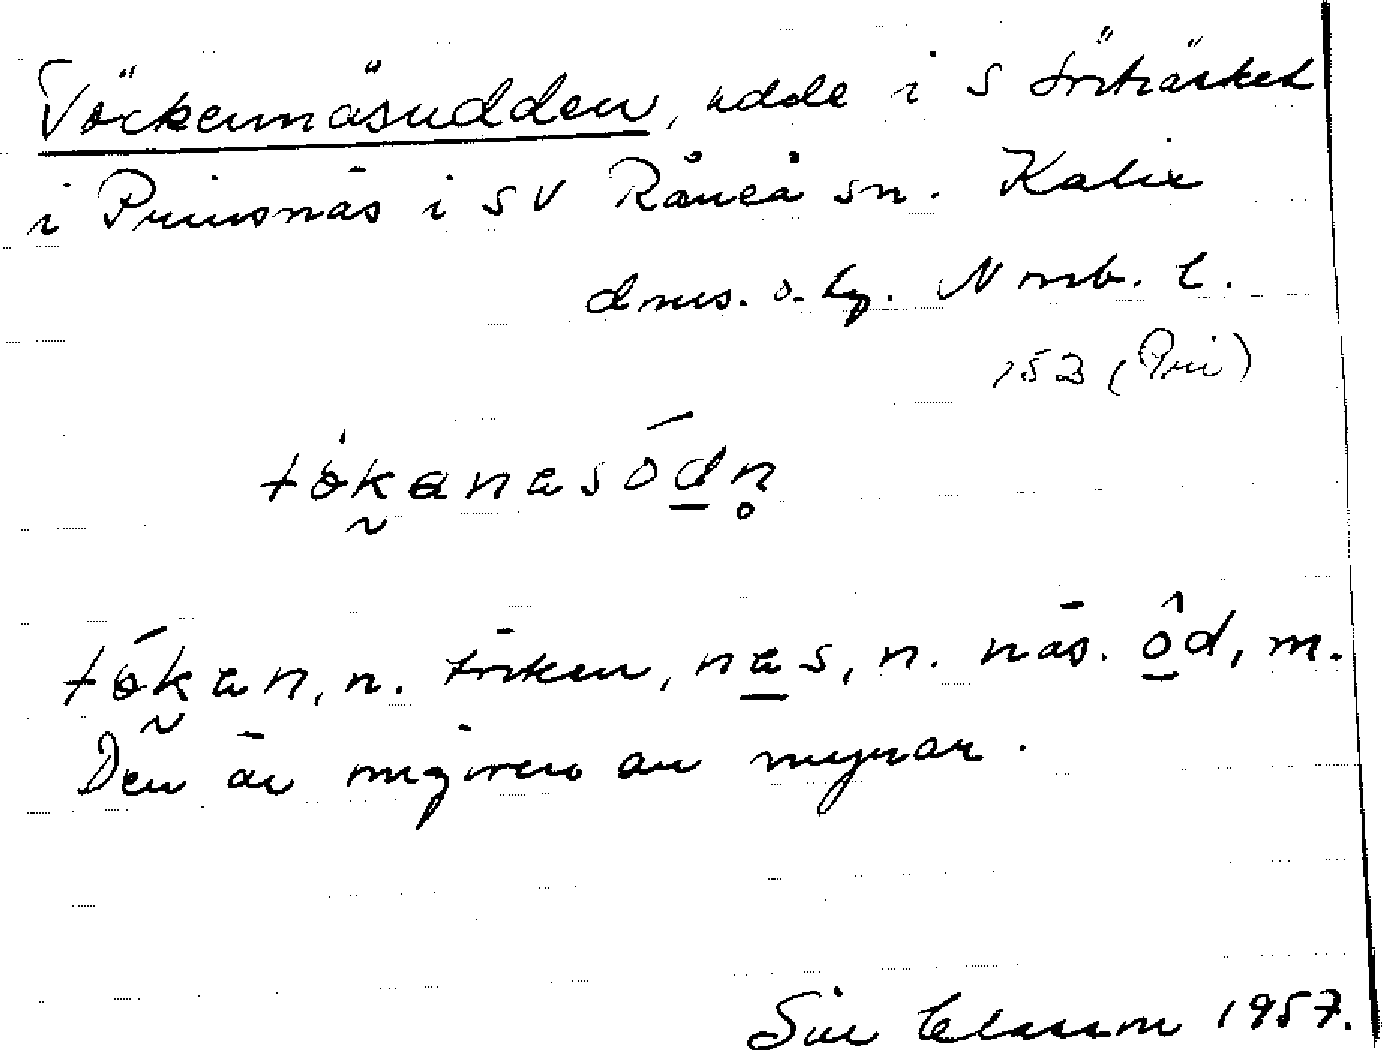 Töckennäsudden, udde i S Förträsket
i Prinsnäs i SV Råneå sn. Kalix
dms. o. lg. Norrb. l.
153 (Pri)
tökanasódn
tökan, n. töcken, nas, n. näs. ôd, m.
Den är omgiven av myrar.
Siv Classon 1957.